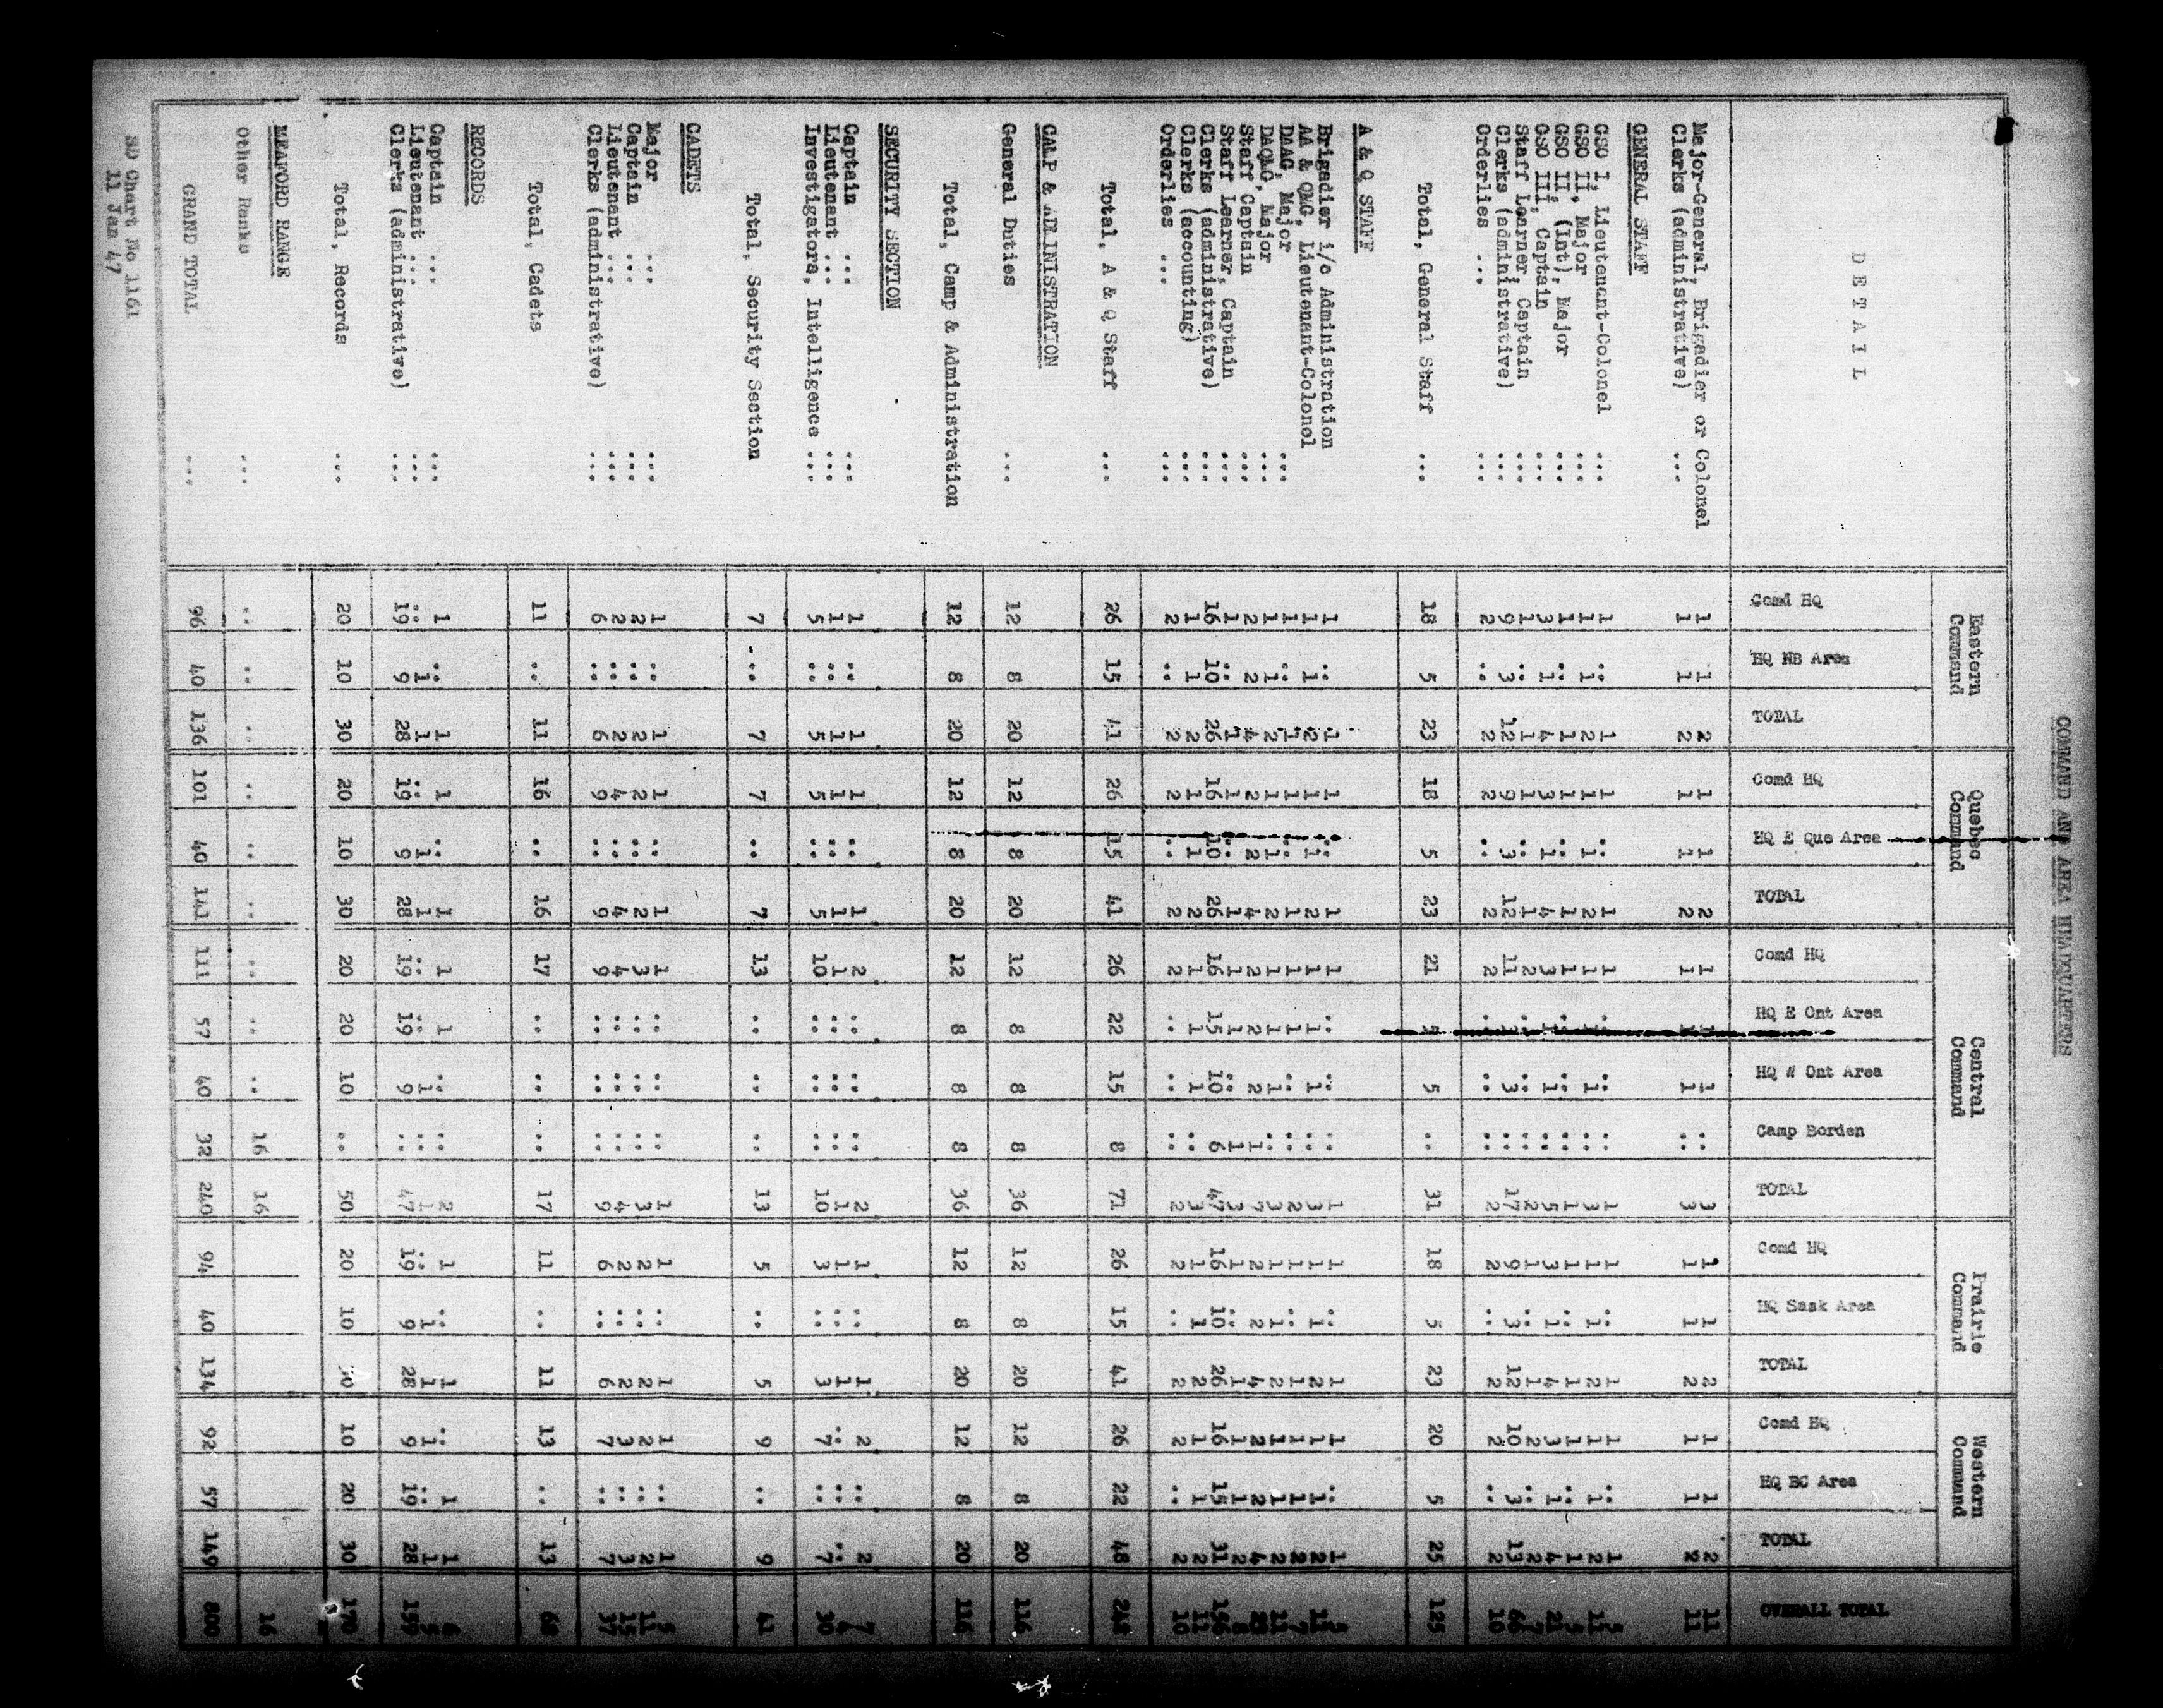 COMMAND AND AREA HEADQUARTERS
D E T A I L Eastern Command Quebec Command Central Command Prairie Command Western Command OVERALL TOTAL
Comd HQ HQ NB Area TOTAL Comd HQ HQ E Que Area TOTAL Comd HQ HQ E Ont Area HQ W Ont Area Camp Borden TOTAL Comd HQ HQ Sask Area TOTAL Comd HQ HQ BC Area TOTAL
Major-General, Brigadier or Colonel 1 1 2 1 1 2 1 1 1 .. 3 1 1 2 1 1 2 11
Clerks (administrative) ... 1 1 2 1 1 2 1 1 1 .. 3 1 1 2 1 1 2 11
GENERAL STAFF
GSO I, Lieutenant-Colonel ... 1 .. 1 1 .. 1 1 .. .. .. 1 1 .. 1 1 .. 1 5
GSO II, Major ... 1 1 2 1 1 2 1 1 1 .. 3 1 1 2 1 1 2 11
GSO II, (Int), Major ... 1 .. 1 1 .. 1 1 .. .. .. 1 1 .. 1 1 .. 1 5
GSO III, Captain ... 3 1 4 3 1 4 3 1 1 .. 5 3 1 4 3 1 4 21
Staff Learner, Captain ... 1 .. 1 1 .. 1 2 .. .. .. 2 1 .. 1 2 .. 2 7
Clerks (administrative) ... 9 3 12 9 3 12 11 3 3 .. 17 9 3 12 10 3 13 66
Orderlies ... ... 2 .. 2 2 .. 2 2 .. .. .. 2 2 .. 2 2 .. 2 10
Total, General Staff ... 18 5 23 18 5 23 21 5 5 .. 31 18 5 23 20 5 25 125
A & Q STAFF
Brigadier i/c Administration 1 .. 1 1 .. 1 1 .. .. .. 1 1 .. 1 1 .. 1 5
AA & QMG, Lieutenant-Colonel 1 1 2 1 1 2 1 1 1 .. 3 1 1 2 1 1 2 11
DAAG, Major ... 1 .. 1 1 .. 1 1 1 .. .. 2 1 .. 1 1 1 2 7
DAQMG, Major ... 1 1 2 1 1 2 1 1 1 .. 3 1 1 2 1 1 2 11
Staff Captain ... 2 2 4 2 2 4 2 2 2 1 7 2 2 4 2 2 4 23
Staff Learner, Captain ... 1 .. 1 1 .. 1 1 1 .. 1 3 1 .. 1 1 1 2 8
Clerks (administrative) ... 16 10 26 16 10 26 16 15 10 6 47 16 10 26 16 15 31 156
Clerks (accounting) ... 1 1 2 1 1 2 1 1 1 .. 3 1 1 2 1 1 2 11
Orderlies ... ... 2 .. 2 2 .. 2 2 .. .. .. 2 2 .. 2 2 .. 2 10
Total, A & Q Staff ... 26 15 41 26 15 41 26 22 15 8 71 26 15 41 26 22 48 242
CAMP & ADMINISTRATION
General Duties ... 12 8 20 12 8 20 12 8 8 8 36 12 8 20 12 8 20 116
Total, Camp & Administration 12 8 20 12 8 20 12 8 8 8 36 12 8 20 12 8 20 116
SECURITY SECTION
Captain ... ... 1 .. 1 1 .. 1 2 .. .. .. 2 1 .. 1 2 .. 2 7
Lieutenant ... ... 1 .. 1 1 .. 1 1 .. .. .. 1 1 .. 1 .. .. .. 4
Investigators, Intelligence ... 5 .. 5 5 .. 5 10 .. .. .. 10 3 .. 3 7 .. 7 30
Total, Security Section 7 .. 7 7 .. 7 13 .. .. .. 13 5 .. 5 9 .. 9 41
CADETS
Major ... ... 1 .. 1 1 .. 1 1 .. .. .. 1 1 .. 1 1 .. 1 5
Captain ... ... 2 .. 2 2 .. 2 3 .. .. .. 3 2 .. 2 2 .. 2 11
Lieutenant ... ... 2 .. 2 4 .. 4 4 .. .. .. 4 2 .. 2 3 .. 3 15
Clerks (administrative) ... 6 .. 6 9 .. 9 9 .. .. .. 9 6 .. 6 7 .. 7 37
Total, Cadets 11 .. 11 16 .. 16 17 .. .. .. 17 11 .. 11 13 .. 13 68
RECORDS
Captain ... ... 1 .. 1 1 .. 1 1 1 .. .. 2 1 .. 1 .. 1 1 6
Lieutenant ... ... .. 1 1 .. 1 1 .. .. 1 .. 1 .. 1 1 1 .. 1 5
Clerks (administrative) ... 19 9 28 19 9 28 19 19 9 .. 47 19 9 28 9 19 28 159
Total, Records ... 20 10 30 20 10 30 20 20 10 .. 50 20 10 30 10 20 30 170
MEAFORD RANGE
Other Ranks ... .. .. .. .. .. .. .. .. .. 16 16 16
GRAND TOTAL ... 96 40 136 101 40 141 111 57 40 32 240 94 40 134 92 57 149 800
SD Chart No 1161
11 Jan 47